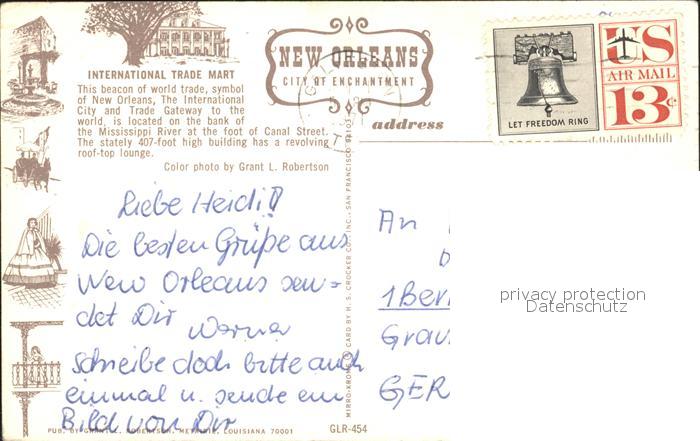 INTERNATIONAL TRADE MART
This beacon of world trade, symbol
of New Orleans, The International
City and Trade Gateway to the
world, is located on the bank of
the Mississippi River at the foot of Canal Street.
The stately 407-foot high building has a revolving
roof-top lounge.
Color photo by Grant L. Robertson
NEW ORLEANS
CITY OF ENCHANTMENT
address
LET FREEDOM RING
US
AIR MAIL
13c
Liebe Heidi!!
Die besten Grüße aus
New Orleans sen=
det Dir Werner
schreibe doch bitte auch
einmal u. sende ein
Bild von Dir
PUB. BY GRANT L. ROBERTSON, METAIRIE, LOUISIANA 70001
GLR-454
MIRRO-KROME ® CARD BY H. S. CROCKER CO., INC., SAN FRANCISCO, 94103
An
1 Ber
Grau
GER
privacy protection
Datenschutz